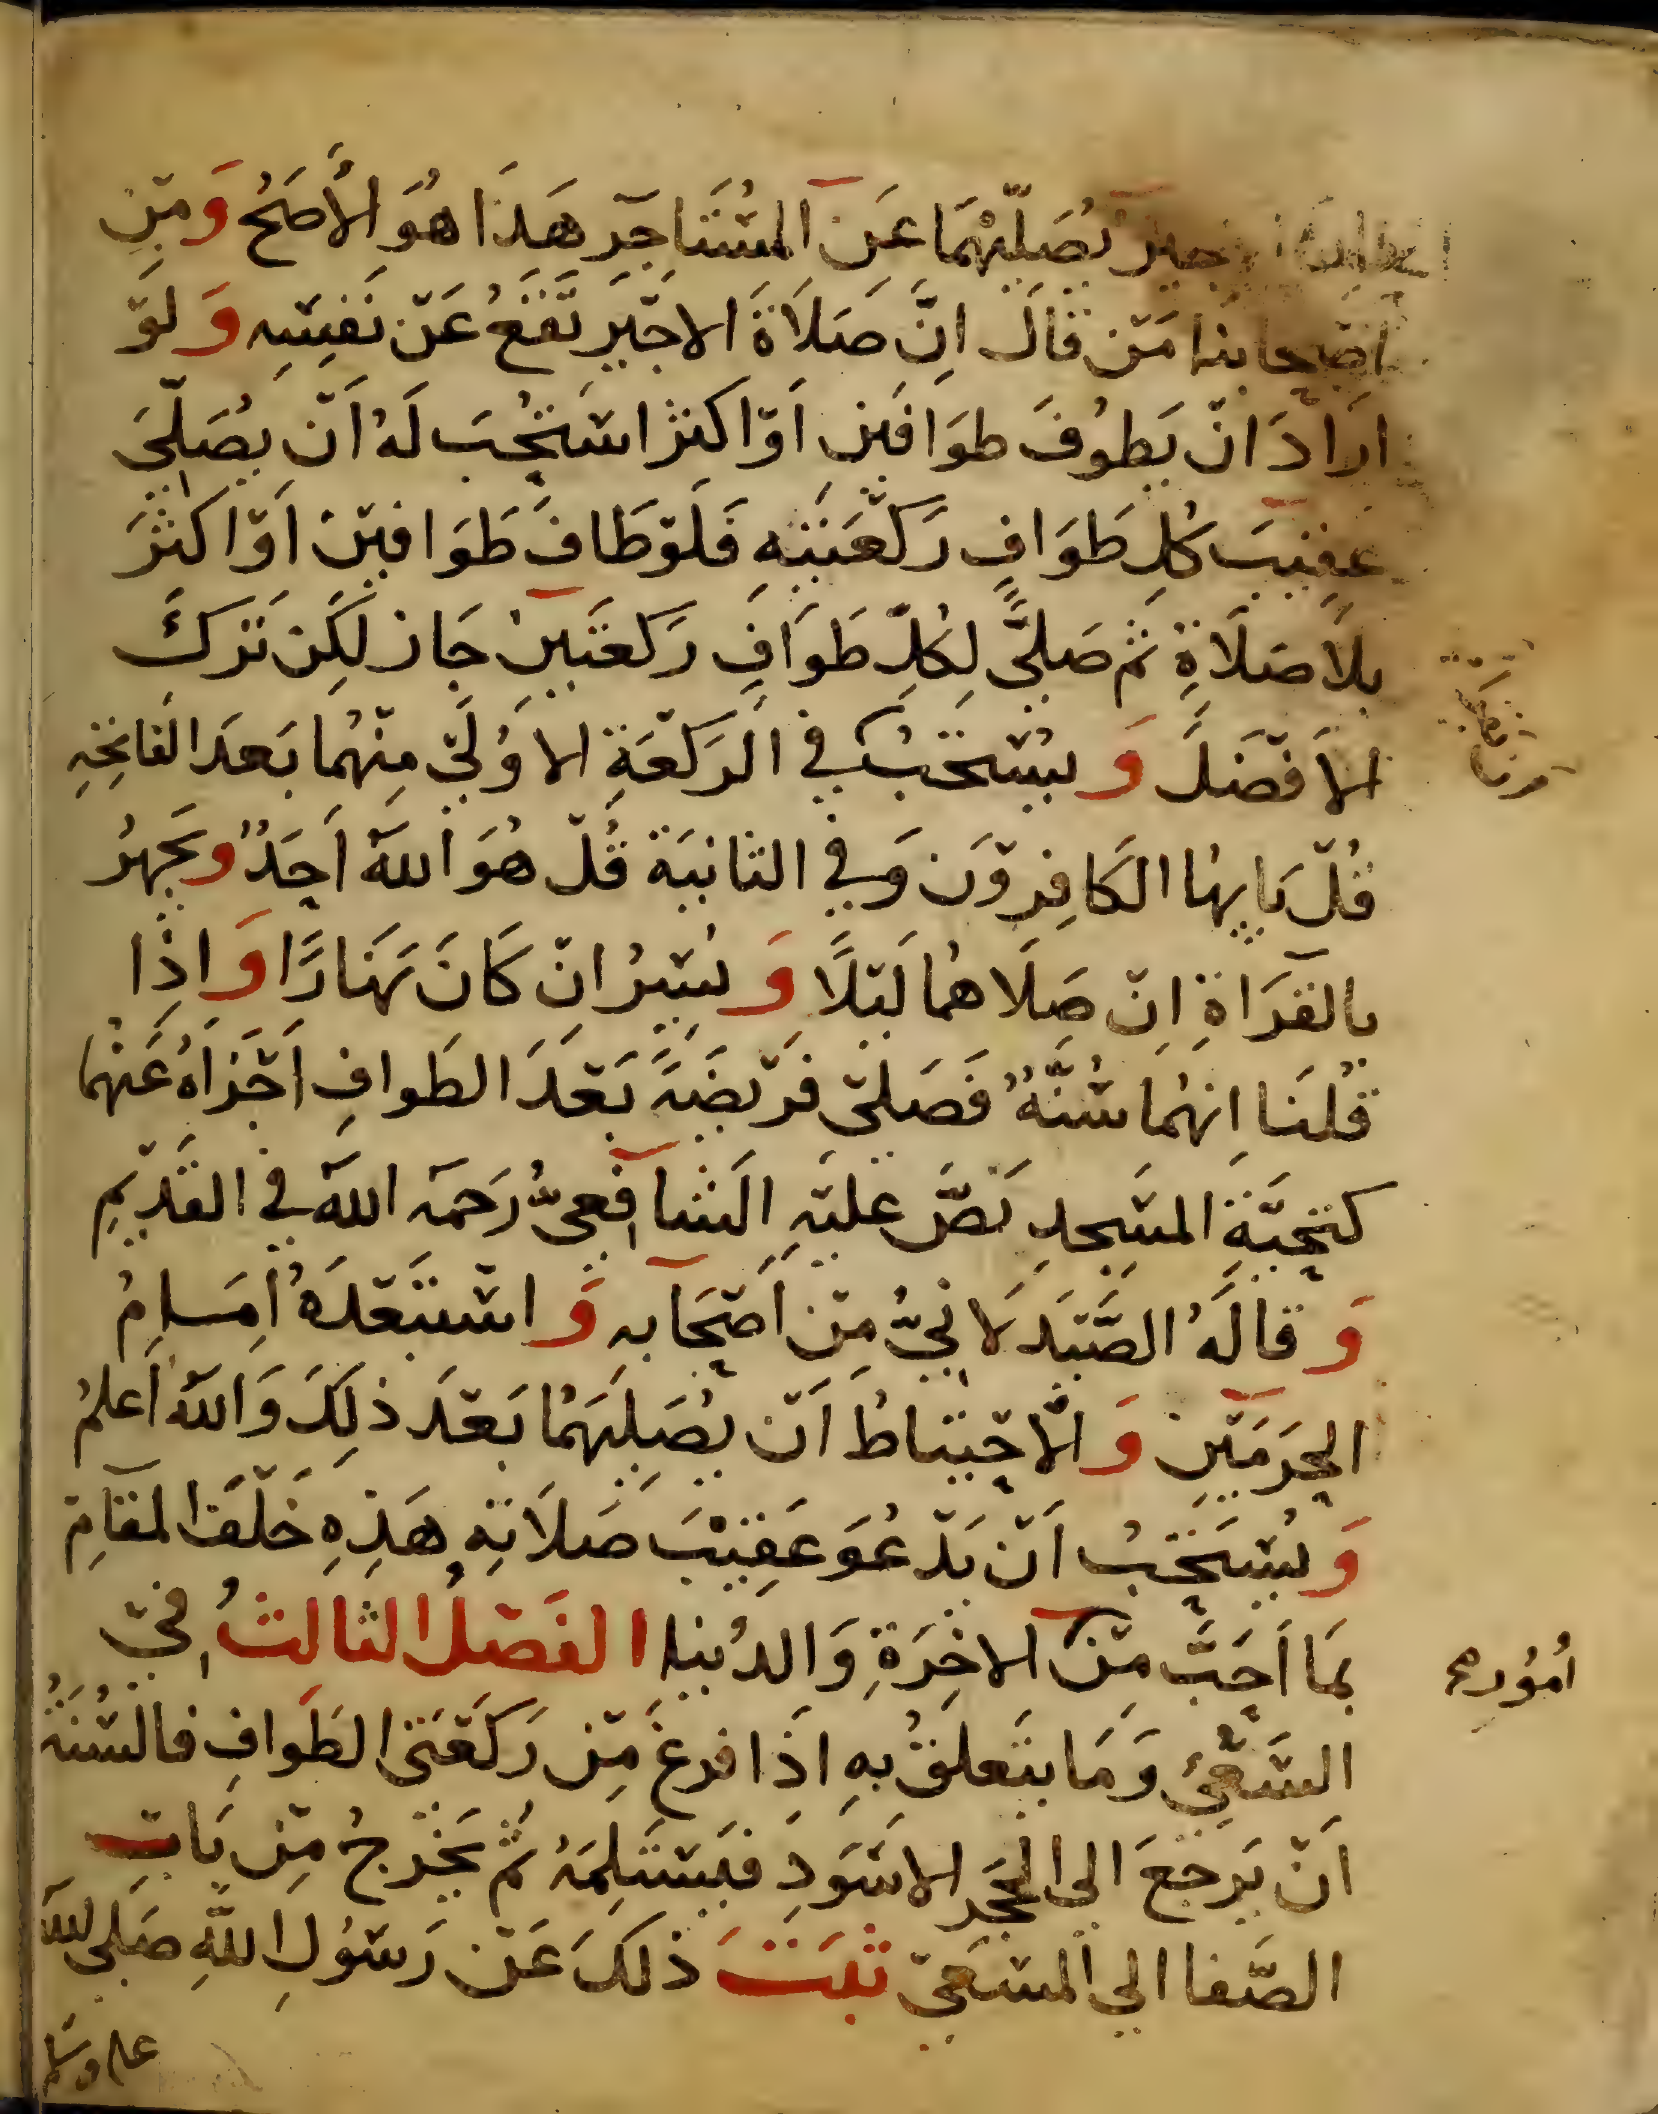 يُصَلِّيْهِمَا عَنِ المُسْتَاجِرِ هَذَا هُوَ الأَصَحُّ وَمِنْ
اَصْحَابنَا مَنْ قَالَ اِنَّ صَلَاةَ الاجِيْرِ تَقَعُ عَنْ نَفْسِهِ وَلَوْ
ارَادَ انْ يَطوُفَ طوَافَينِ اَوْ اكثر اسْتُحِبَ لَهُ اَنْ يُصَلِّيَ
عَقِيْبَ كُلِ طَوَافٍ رَكْعَتَيْهِ فَلَوْ طَافَ طَوَافيْنِ اَوْ اكثَرَ
بِلَا صَلَاةٍ ثم صَلَّى لِكُلِّ طَوَافٍ رَكعَتَيْنِ جَاز لَكِن تَرَكَ
الاَفْضَلَ وَيُسْتَحَبُ في الرَكْعَةِ الاُوْلَىْ مِنْهُما بَعدَ الفَاتِحَةِ
قُلْ يَايها الكَافِروْنَ وَفي الثانيَة قُلْ هُوَ اللهُ اَحَدٌ ويَجهرُ
بالقرَاةِ اِنْ صَلَاهُمَا لَيْلًا وَيُسِرُ انْ كَانَ نَهَارًا وَاِذا
قلْنَا اِنهُمَا سُنَّةٌ فَصَلىْ فرْيضَةً بَعْدَ الطَوافِ اَجْزَاهُ عَنهُما
كتَحِيَّةِ المَسْجِدِ نَصَّ عَليْهِ الشَافِعيُّ رَحمَهُ اللهُ في القَدِيْمِ
وَقالَهُ الصَّيْدَلانيُّ مِنْ اَصْحَابِهِ وَاسْتَبْعَدَهُ اِمَامُ
الحَرَمَيْنِ وَالْاحْتيَاطُ اَنْ يُصَلِيَهُمَا بَعْدَ ذلِكَ وَاللهُ اَعلمُ
وَيُسْتَحَبُ اَنْ يَدْعُوَ عَقِيْبَ صَلَاتِهِ هَذِهِ خَلْفَ المقَامِ
بمَا اَحَبَّ مِنْ الاخِرَةِ وَالدُنيا الفَصْلُ الثالثُ فيْ
السَعْيِ وَمَا يتَعلقُ بهِ اِذَا فرغَ مِنْ رَكعَتَي الطَوافِ فالسُنَةُ
اَنْ يَرجعَ الى الحَجَرِ الاسْوَدِ فيَسْتَلِمَهُ ثُم يَخْرجُ مِنْ بَابِ
الصَّفا الى المسْعَىْ ثبَتَ ذلكَ عَنْ رَسُولِ اللهِ صَلى الله
عليه وسلم